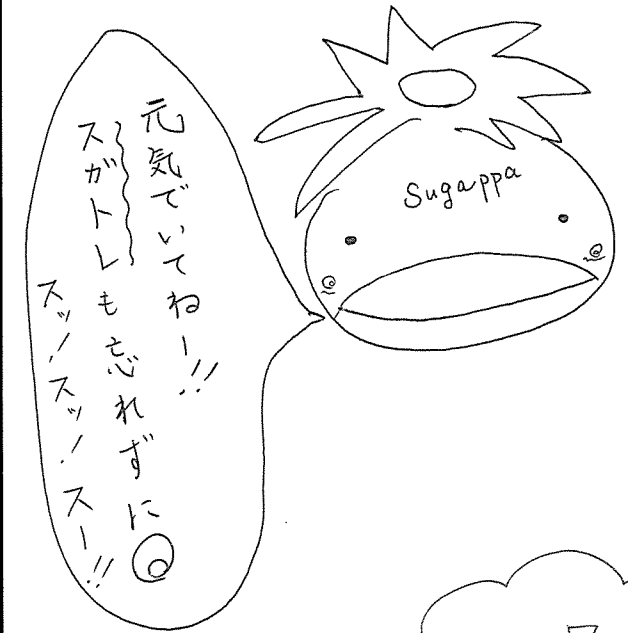 元気でいてねー!!
スガトレも忘れずに
スッ!スッ!スー!!
Sugappa